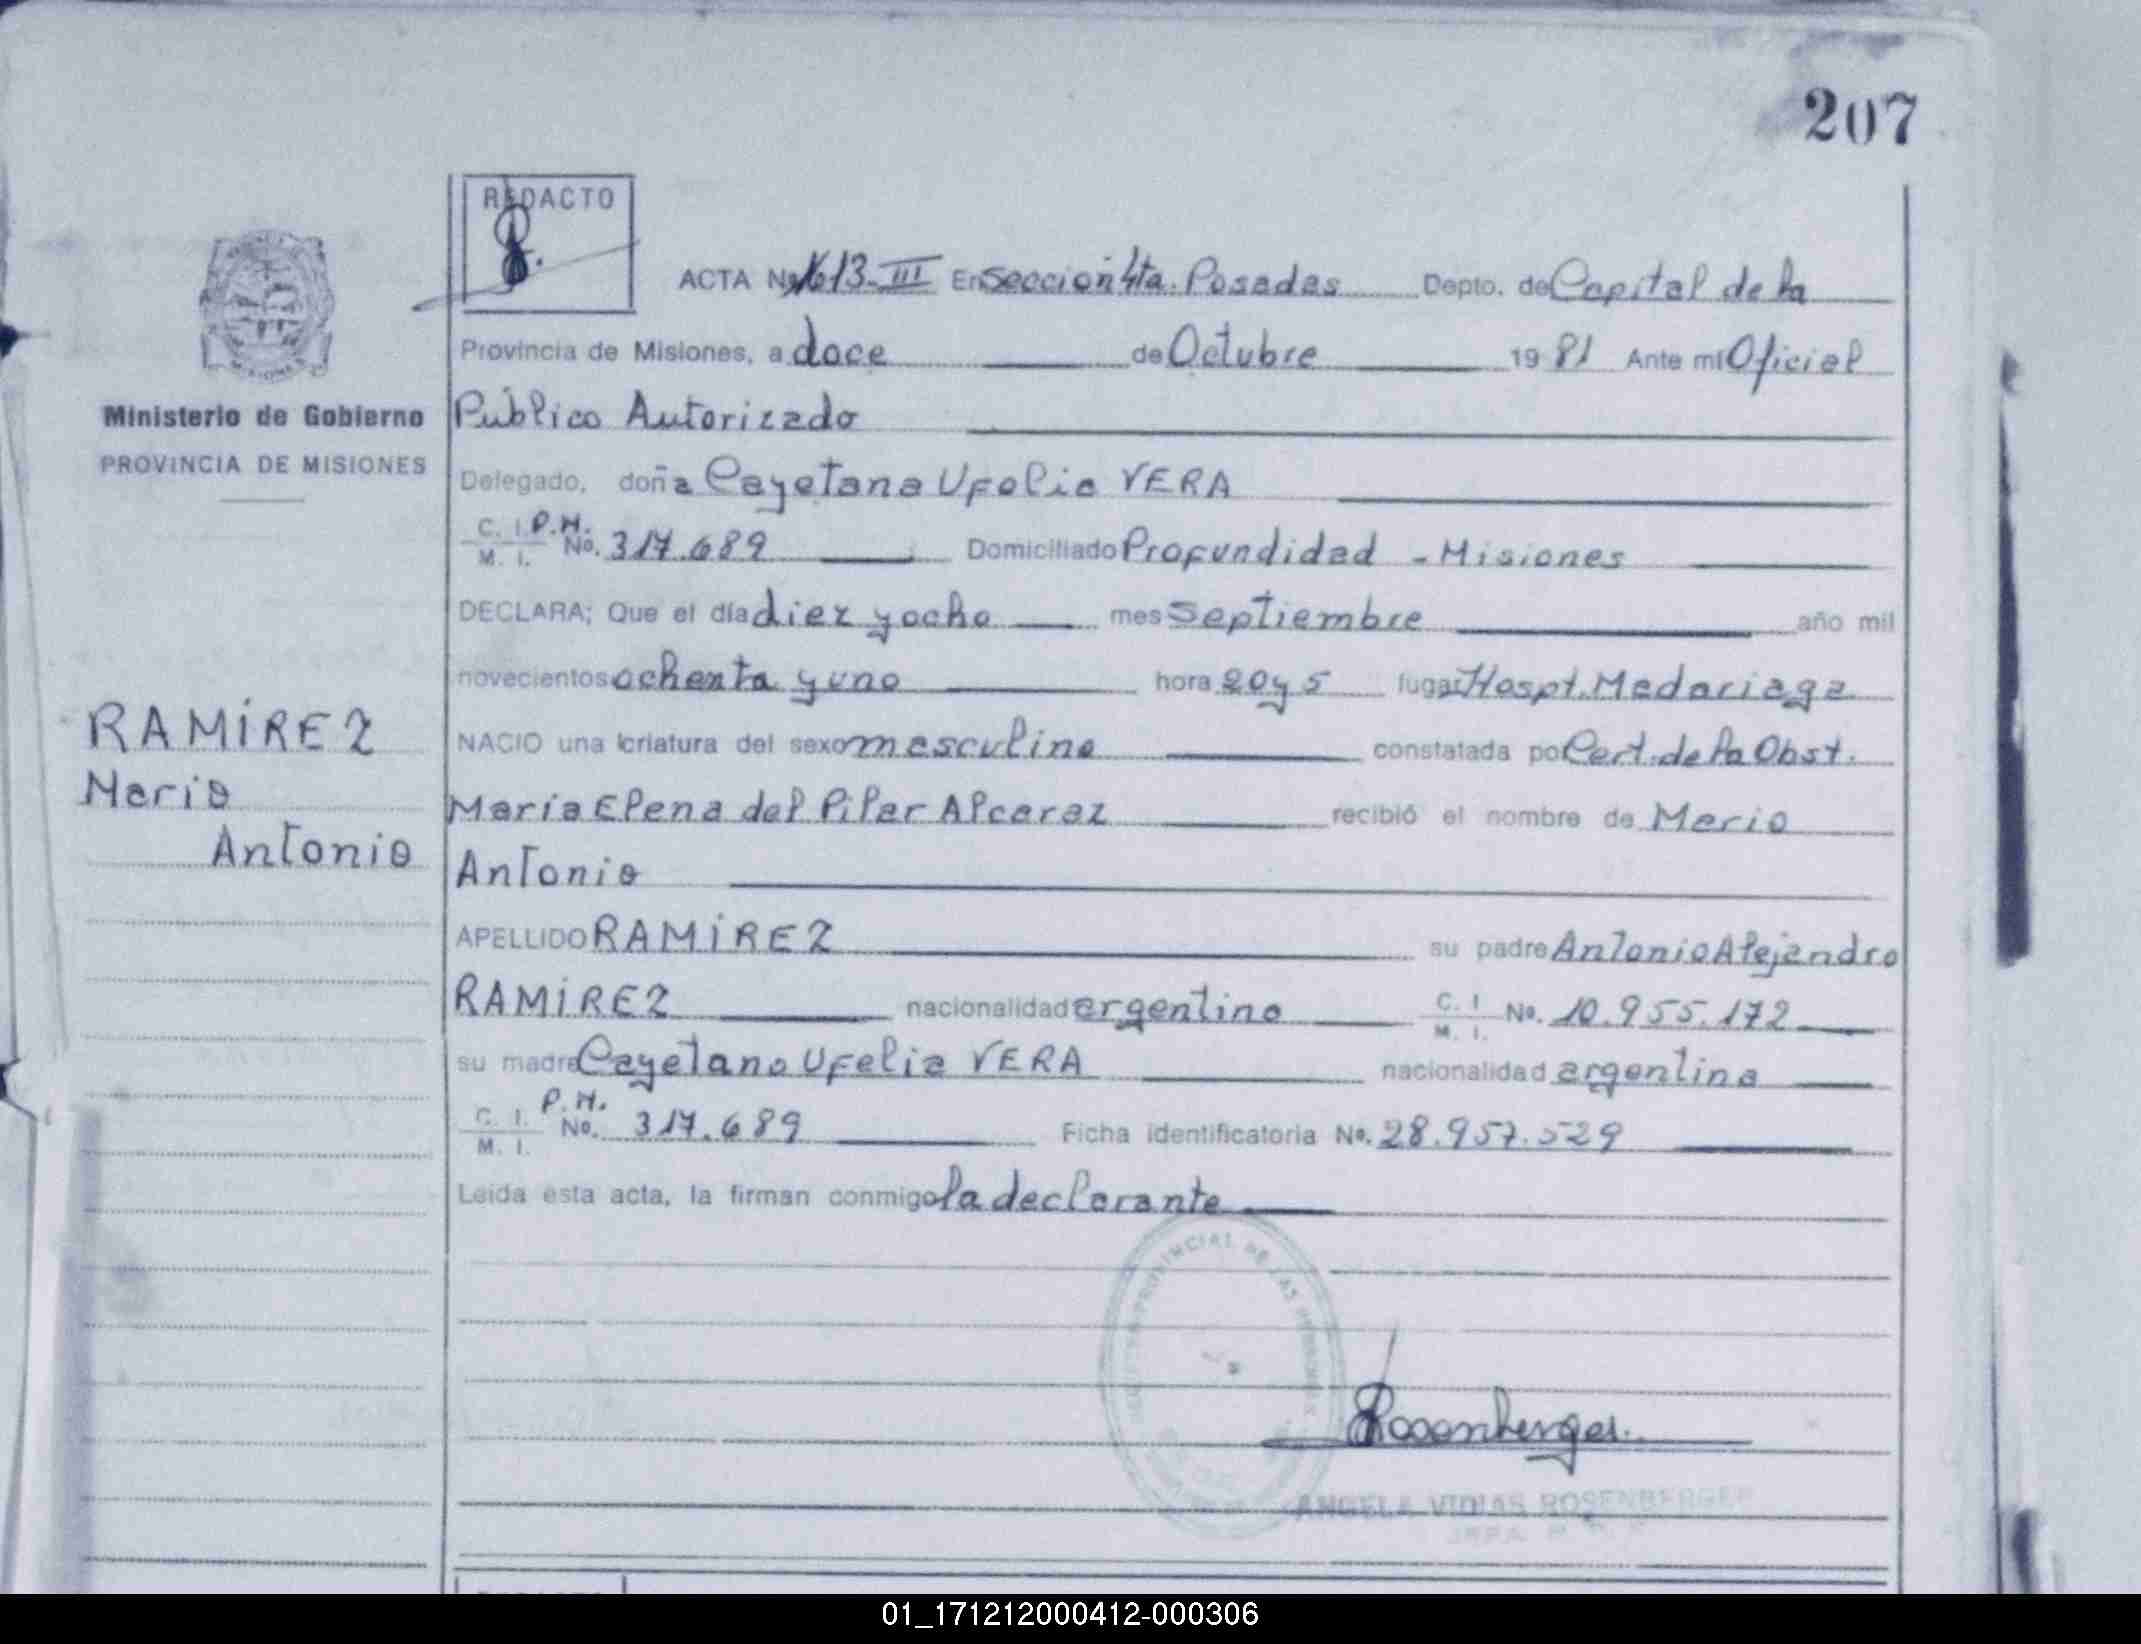 207
REDACTO
ACTA No. 1613-III En Sección 4ta. Posadas Depto. de Capital de la
Provincia de Misiones, a doce de Octubre 1981 Ante mí Oficial
Ministerio de Gobierno
Público Autorizado
PROVINCIA DE MISIONES
Delegado, doña Cayetana Ufelia VERA
C. I. P.M.
M. I. No. 317.689 Domiciliado Profundidad - Misiones
DECLARA; Que el día diez y ocho mes Septiembre año mil
novecientos ochenta y uno hora 20 y 5 lugar Hospt. Madariaga
RAMÍREZ
NACIO una criatura del sexo masculino constatada por Cert. de la Obst.
Mario
María Elena del Pilar Alcaraz recibió el nombre de Mario
Antonio
Antonio
APELLIDO RAMÍREZ su padre Antonio Alejandro
RAMÍREZ nacionalidad argentino C. I. M. I. No. 10.955.172
su madre Cayetana Ufelia VERA nacionalidad argentina
C. I. P.M.
M. I. No. 317.689 Ficha identificatoria No. 28.957.529
Leída esta acta, la firman conmigo la declarante
PROVINCIAL DE LAS PERSONAS
Rosenberger
ANGELA VIDIAS ROSENBERGER
01_171212000412-000306